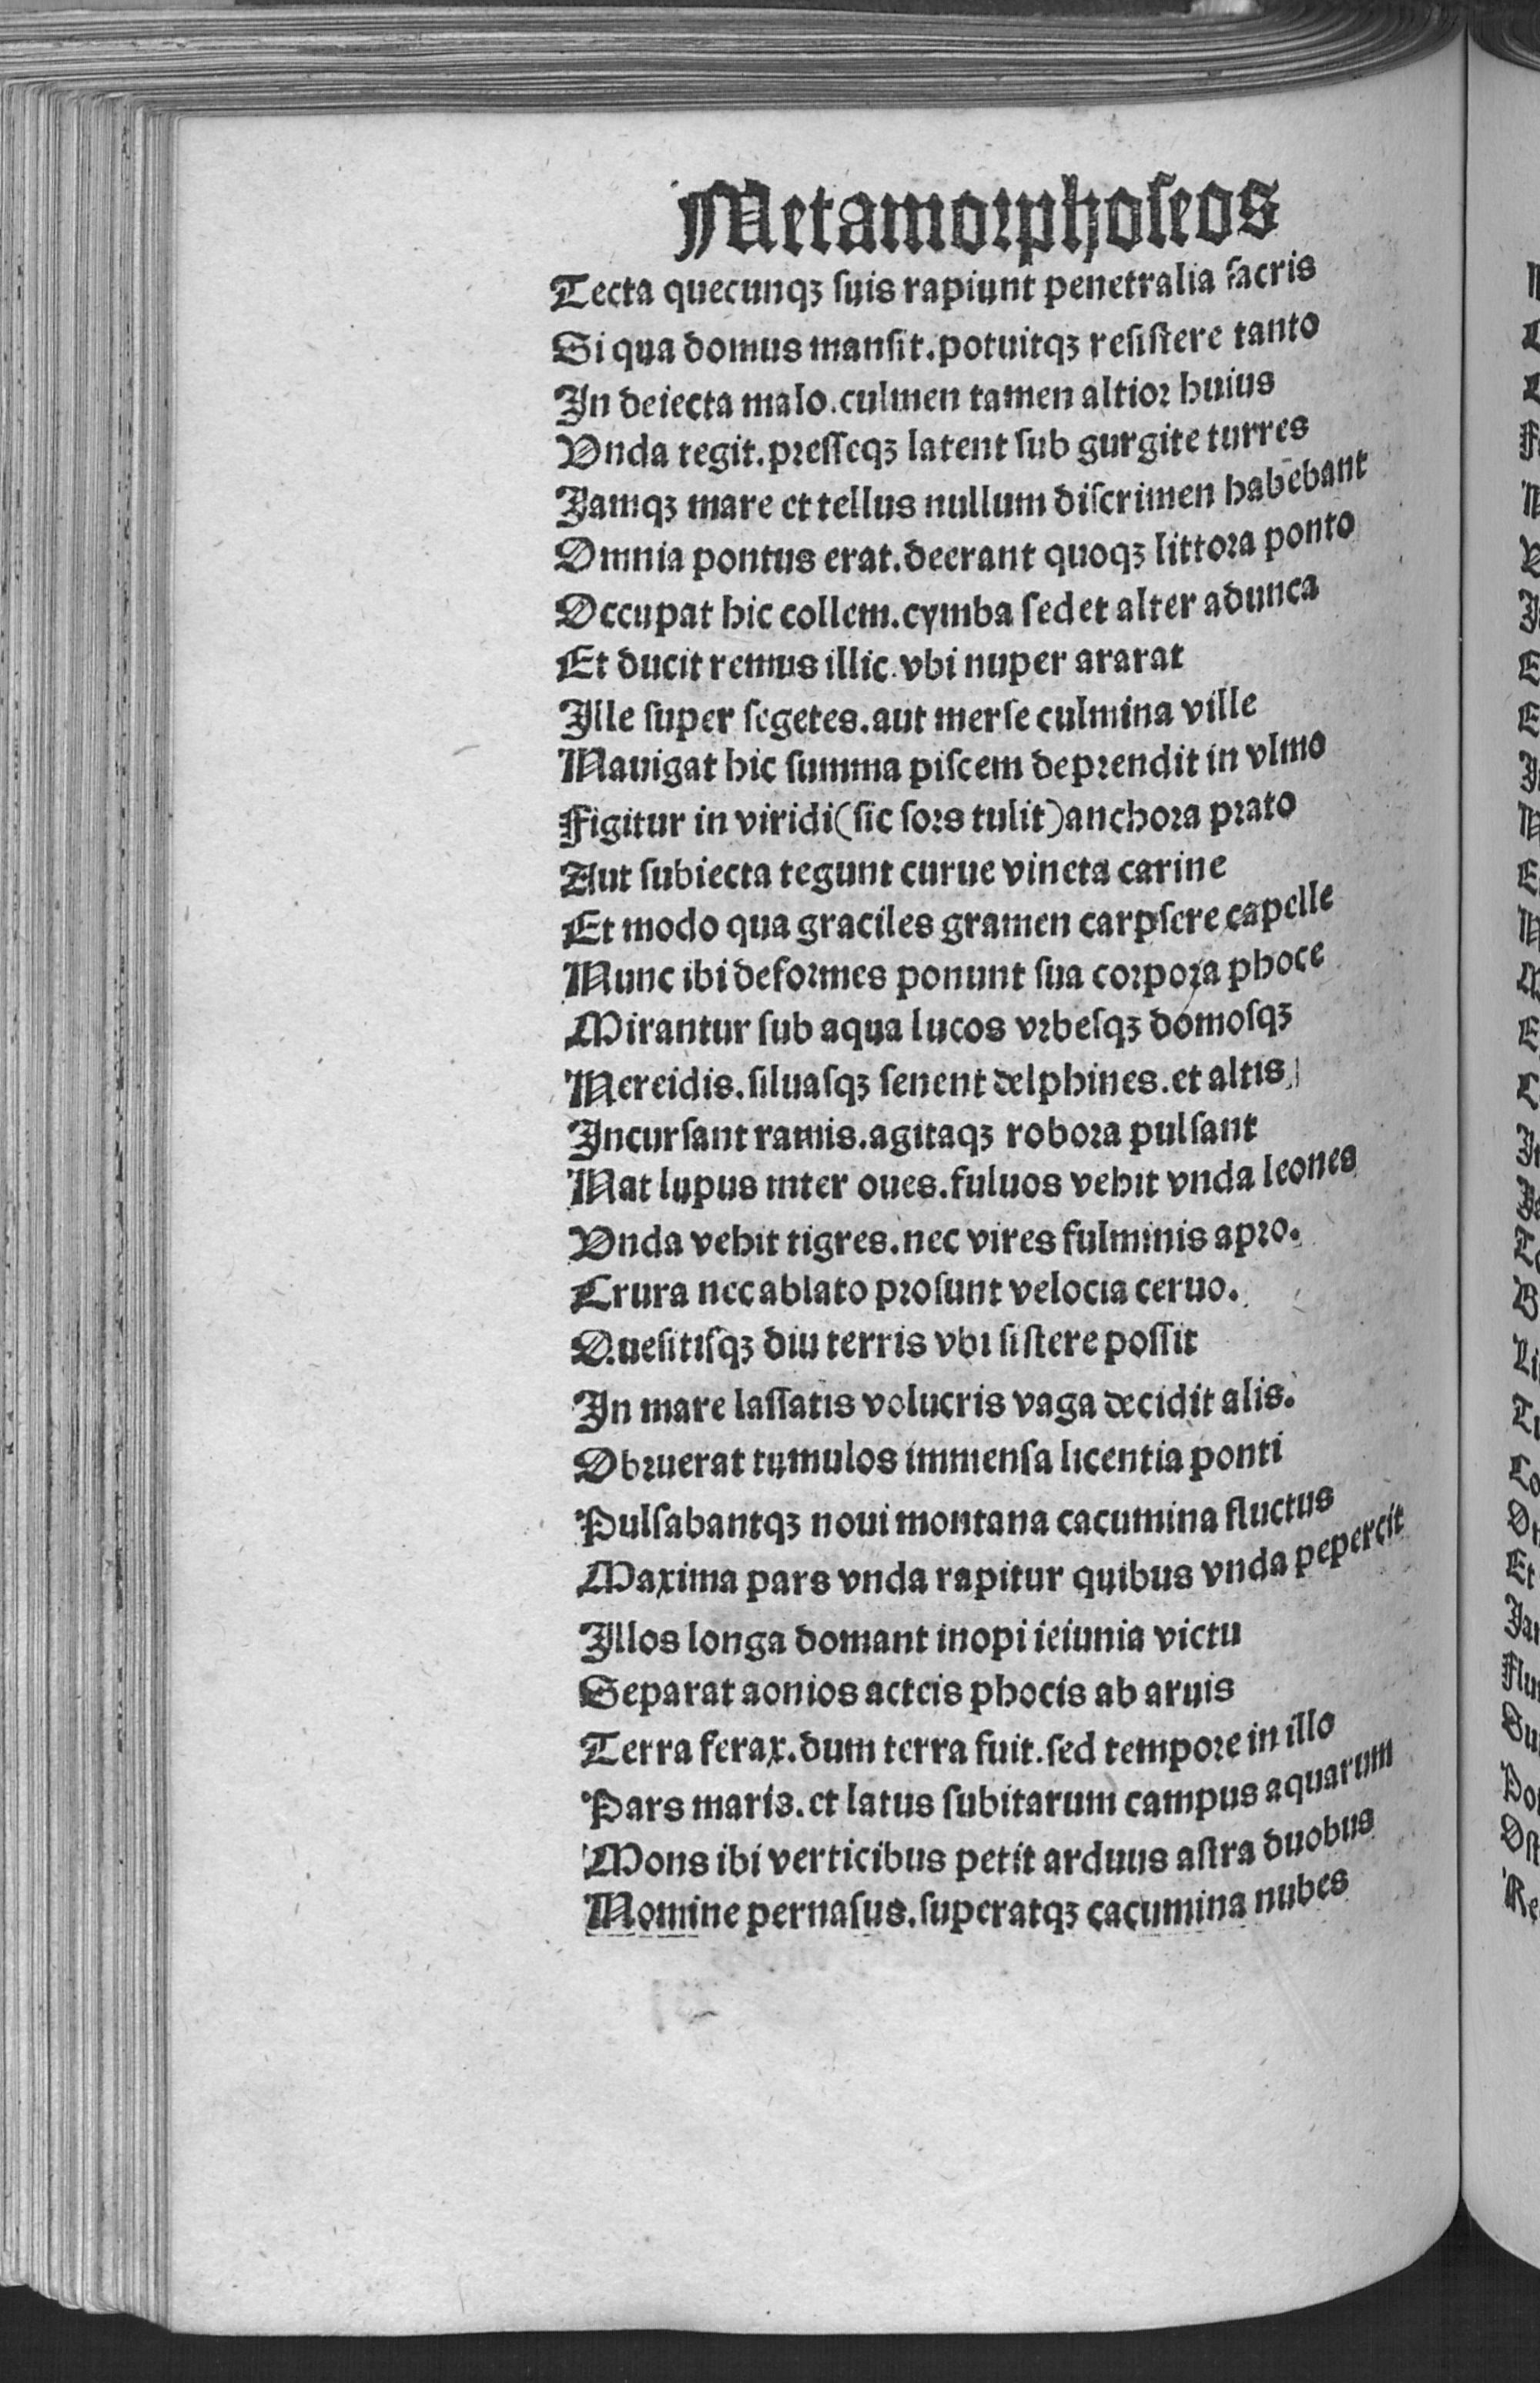 Metamorphoseos
Tecta quecunqꝫ suis rapiunt penetralia sacris
Si qua domus mansit.potuitqꝫ resistere tanto
In deiecta malo.culmen tamen altior huius
Vnda tegit.presseqꝫ latent sub gurgite turres
Jamqꝫ mare et tellus nullum discrimen habebant
Omnia pontus erat.deerant quoqꝫ littora ponto
Occupat hic collem.cymba sedet alter adunca
Et ducit remus illic.vbi nuper ararat
Ille super segetes.aut merse culmina ville
Nauigat hic summa piscem deprendit in vlmo
Figitur in viridi(sic sors tulit)anchora prato
Aut subiecta tegunt curue vineta carine
Et modo qua graciles gramen carpsere capelle
Nunc ibi deformes ponunt sua corpora phoce
Mirantur sub aqua lucos vrbesqꝫ domosqꝫ
Nereidis.siluasqꝫ senent delphines.et altis
Incursant ramis.agitaqꝫ robora pulsant
Nat lupus inter oues.fuluos vehit vnda leones
Vnda vehit tigres.nec vires fulminis apro.
Crura nec ablato prosunt velocia ceruo.
Quesitisqꝫ diu terris vbi sistere possit
In mare lassatis volucris vaga decidit alis.
Obruerat tumulos immensa licentia ponti
Pulsabantqꝫ noui montana cacumina fluctus
Maxima pars vnda rapitur quibus vnda pepercit
Illos longa domant inopi ieiunia victu
Separat aonios acteis phocis ab aruis
Terra ferax.dum terra fuit.sed tempore in illo
Pars maris.et latus subitarum campus aquarum
Mons ibi verticibus petit arduus astra duobus
Nomine pernasus.superatqꝫ cacumina nubes